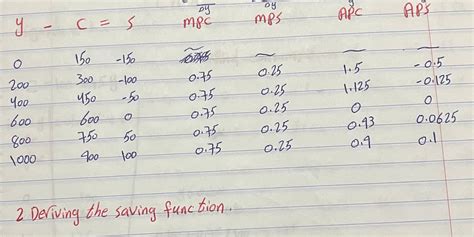 Δy Δy y y
y - C = S MPC MPS APC APS
0 150 -150 ~ ~
200 300 -100 0.75 0.25 1.5 -0.5
400 450 -50 0.75 0.25 1.125 -0.125
600 600 0 0.75 0.25 0 0
800 750 50 0.75 0.25 0.93 0.0625
1000 900 100 0.75 0.25 0.9 0.1
2 Deriving the saving function.